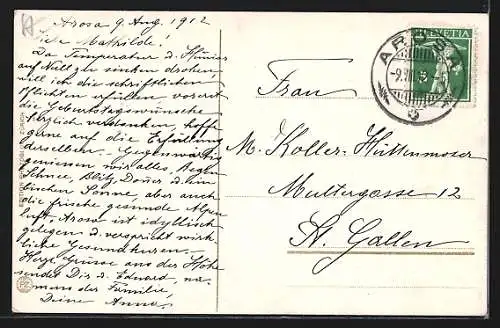 Arosa 9. Aug. 1912
Liebe Mathilde!
Da Temperatur &
auf Null zu sinken drohen
will ich die schriftlichen
Pflichten erfüllen vorerst
die Geburtstagswünsche
herzlich verdanken, hoffe
gerne auf die Erfüllung
derselben. Gegenwärtig
geniessen wir alles, Regen
Schnee, Blitz, Donner &
Sonne aber auch
die frische gesunde Alpen
luft. Arosa ist idyllisch
gelegen & verspricht wirk
liche
Herzl. Grüsse aus der Höhe
sendet Dir & Eduard, na-
mens der Familie
Deine Anna
HELVETIA
AROSA
-9.VIII.12
Frau
M. Koller-Hüttenmoser
Multergasse 12
St. Gallen